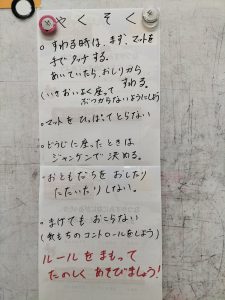 やくそく
○ すわる時は、まず、マットを
手でタッチする。
あいていたら、おしりから
すわる。
(いきおいよく座って
ぶつからないようにしよう)
○ マットをひっぱってとらない
○ どうじに座ったときは
ジャンケンで決める。
○ おともだちをおしたり
たたいたりしない。
○ まけてもおこらない
(気もちのコントロールをしよう)
ルールをまもって
たのしくあそびましょう!